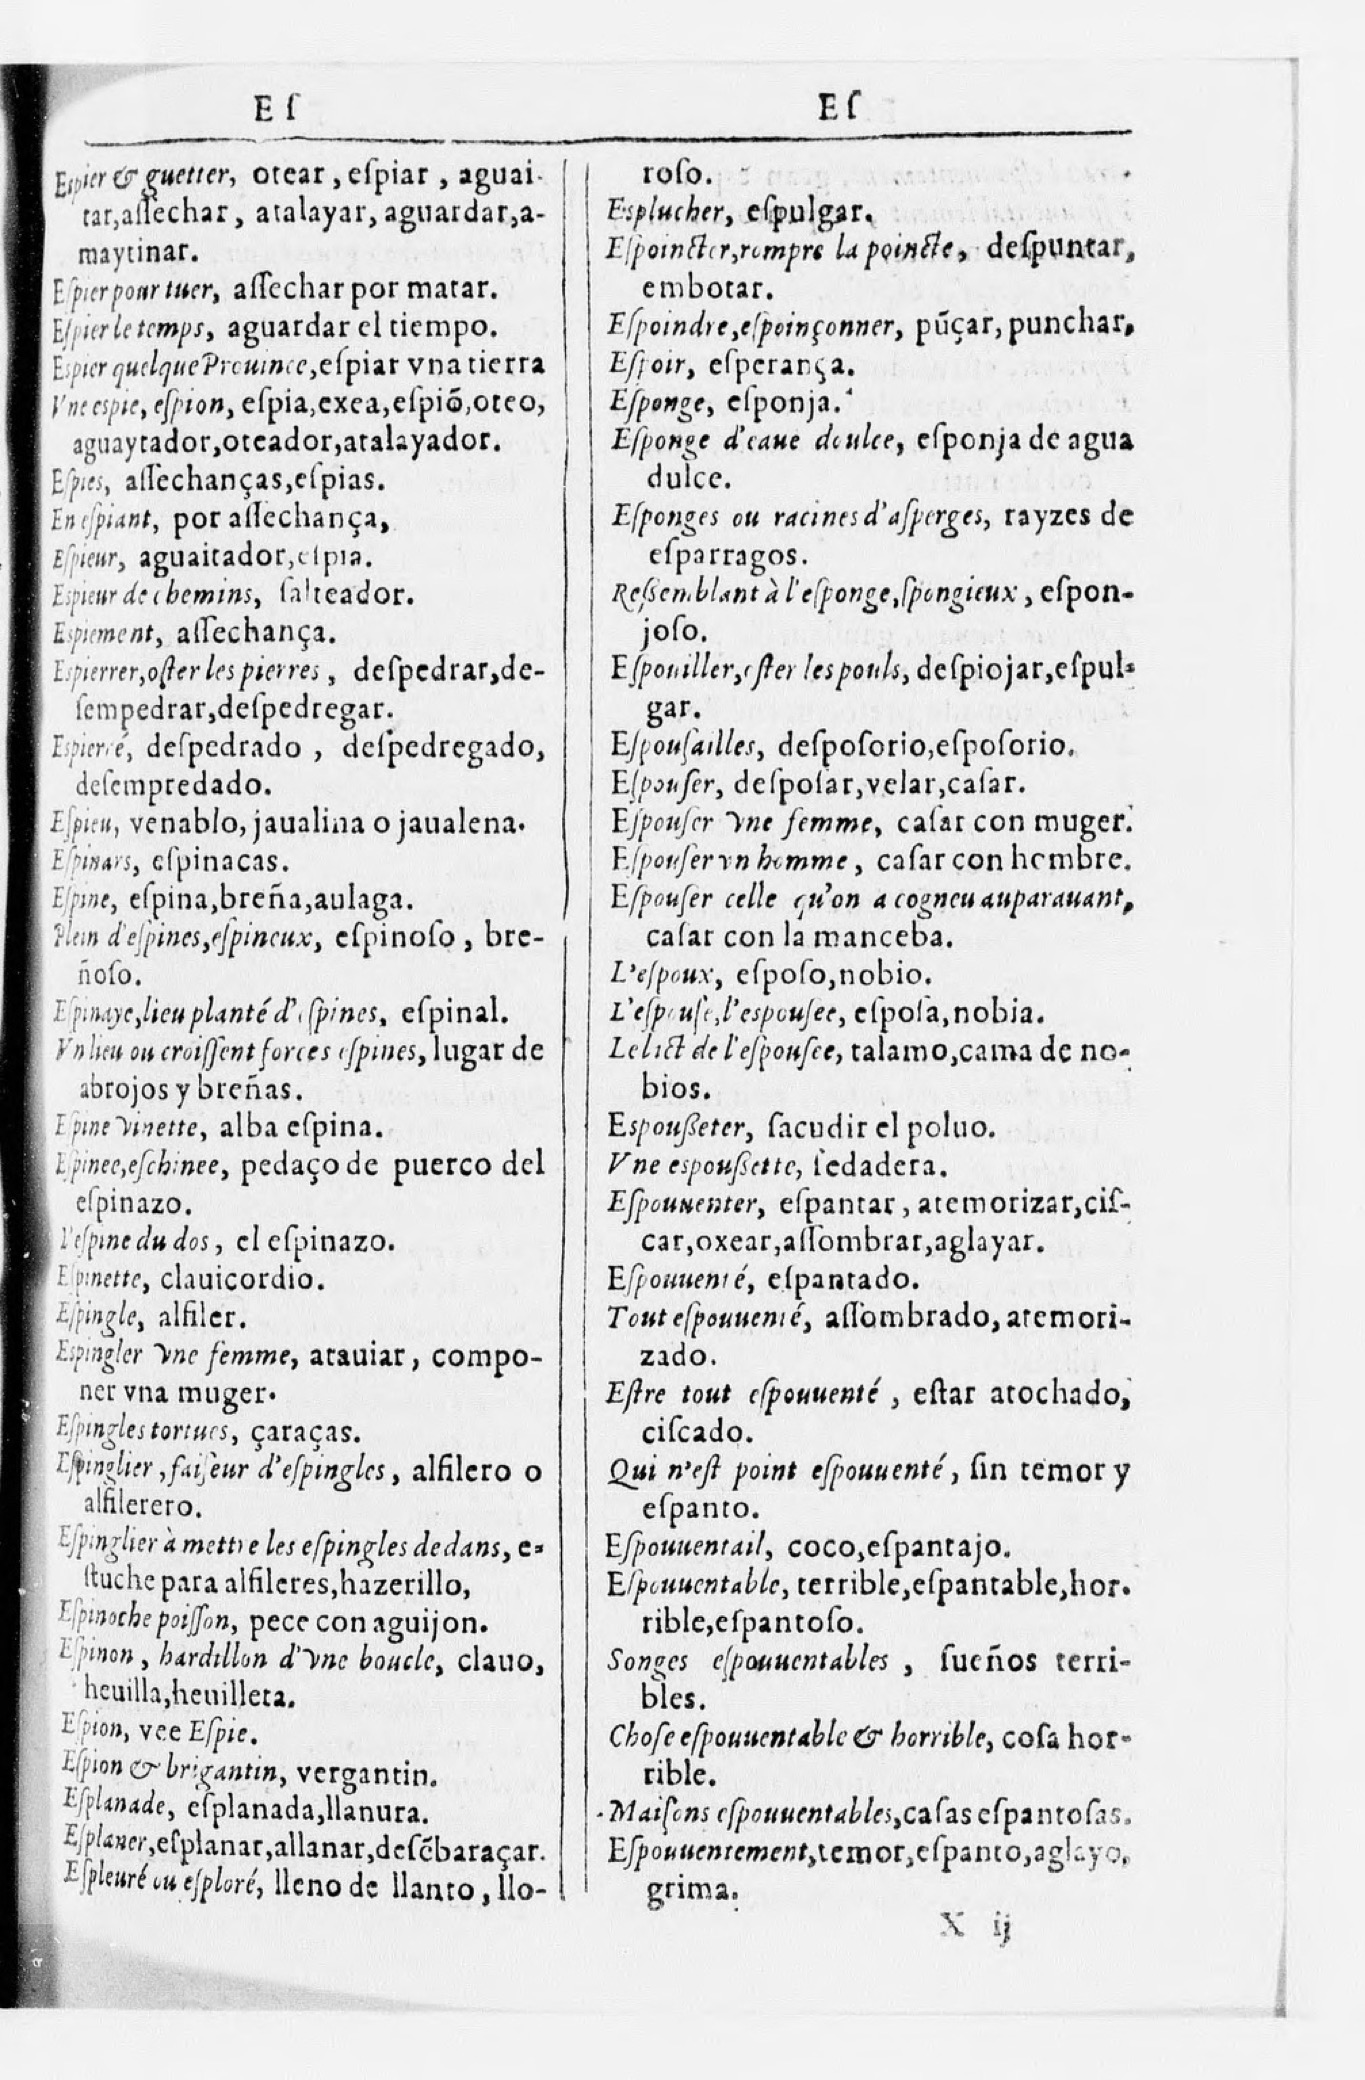 Eſ
Espier & guetter, otear, eſpiar, aguai-
tar, aſſechar, atalayar, aguardar, a-
maytinar.
Eſpier pour tuer, aſſechar por matar.
Eſpier le temps, aguardar el tiempo.
Espier quelque Prouince, eſpiar vna tierra
Vne espie, eſpion, eſpia, exea, eſpiõ, oteo,
aguaytador, oteador, atalayador.
Eſpies, aſſechanças, eſpias.
En eſpiant, por aſſechança,
Eſpieur, aguaitador, eſpia.
Espieur de chemins, ſalteador.
Espiement, aſſechança.
Espierrer, oſter les pierres, deſpedrar, de-
ſempedrar, deſpedregar.
Espierré, deſpedrado, deſpedregado,
deſempredado.
Eſpieu, venablo, jaualina o jaualena.
Eſpinars, eſpinacas.
Eſpine, eſpina, breña, aulaga.
Plein d'eſpines, eſpineux, eſpinoſo, bre-
ñoſo.
Eſpinaye, lieu planté d'eſpines, eſpinal.
Vn lieu ou croiſſent forces eſpines, lugar de
abrojos y breñas.
Eſpine vinette, alba eſpina.
Eſpinee, eſchinee, pedaço de puerco del
eſpinazo.
L'eſpine du dos, el eſpinazo.
Eſpinette, clauicordio.
Eſpingle, alfiler.
Espingler vne femme, atauiar, compo-
ner vna muger.
Eſpingles tortues, çaraças.
Eſpinglier, faiſeur d'eſpingles, alfilero o
alfilerero.
Eſpinglier à mettre les eſpingles dedans, e-
ſtuche para alfileres, hazerillo,
Eſpinoche poiſſon, pece con aguijon.
Eſpinon, hardillon d'vne boucle, clauo,
heuilla, heuilleta.
Eſpion, vee Eſpie.
Eſpion & brigantin, vergantin.
Eſplanade, eſplanada, llanura.
Eſplaner, eſplanar, allanar, deſẽbaraçar.
Eſpleuré ou eſploré, lleno de llanto, llo-
Eſ
roſo.
Esplucher, eſpulgar.
Eſpoincter, rompre la poincte, deſpuntar,
embotar.
Eſpoindre, eſpoinçonner, pũçar, punchar,
Eſpoir, eſperança.
Eſponge, eſponja.
Eſponge d'eaue doulce, eſponja de agua
dulce.
Eſponges ou racines d'aſperges, rayzes de
eſparragos.
Reßemblant à l'eſponge, ſpongieux, eſpon-
joſo.
Eſpouiller, oſter les pouls, deſpiojar, eſpul-
gar.
Eſpouſailles, deſpoſorio, eſpoſorio.
Eſpouſer, deſpoſar, velar, caſar.
Eſpouſer vne femme, caſar con muger.
Eſpouſer vn homme, caſar con hombre.
Eſpouſer celle qu'on a cogneu auparauant,
caſar con la manceba.
L'eſpoux, eſpoſo, nobio.
L'eſpouſe, l'espouſee, eſpoſa, nobia.
Le lict de l'eſpouſee, talamo, cama de no-
bios.
Espoußeter, ſacudir el poluo.
Vne espoußette, ſedadera.
Eſpouuenter, eſpantar, atemorizar, ciſ-
car, oxear, aſſombrar, aglayar.
Eſpouuenté, eſpantado.
Tout eſpouuenté, aſſombrado, atemori-
zado.
Eſtre tout eſpouuenté, eſtar atochado,
ciſcado.
Qui n'eſt point eſpouuenté, ſin temor y
eſpanto.
Eſpouuentail, coco, eſpantajo.
Eſpouuentable, terrible, eſpantable, hor-
rible, eſpantoſo.
Songes eſpouuentables, ſueños terri-
bles.
Choſe eſpouuentable & horrible, coſa hor-
rible.
Maiſons eſpouuentables, caſas eſpantoſas.
Eſpouuentement, temor, eſpanto, aglayo,
grima.
X ij